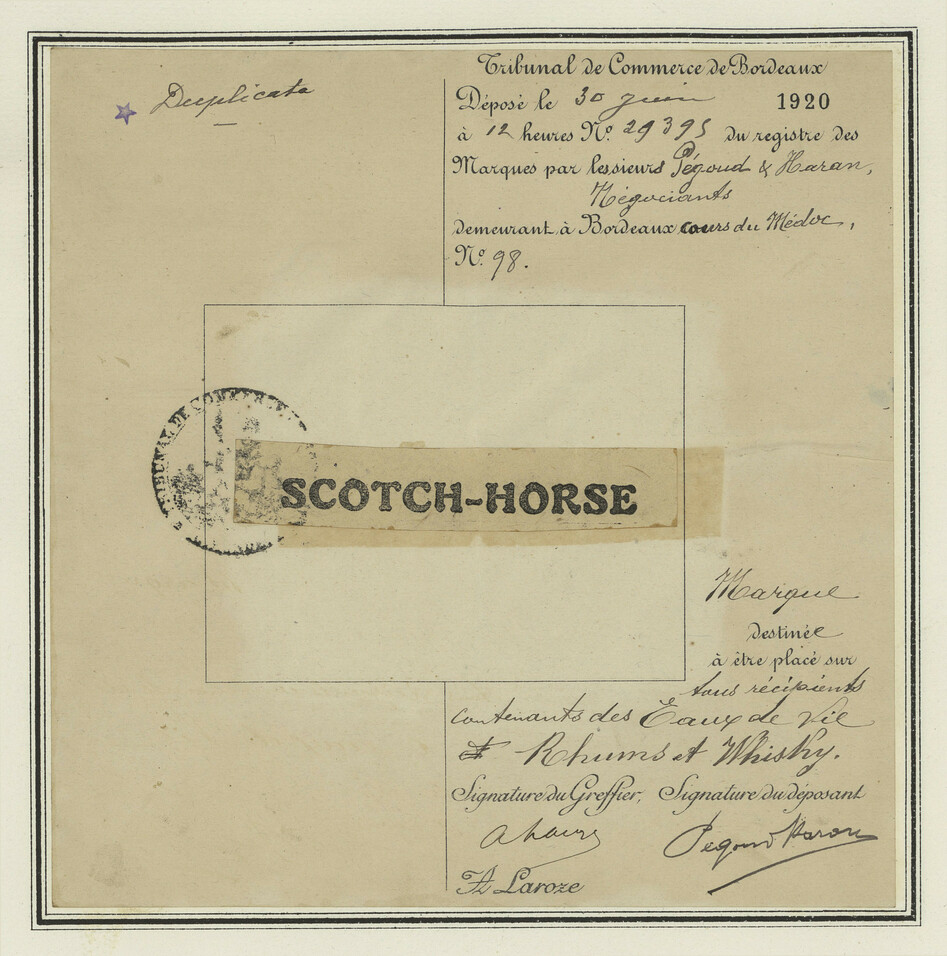 Duplicata
Tribunal de Commerce de Bordeaux
Déposé le 30 Juin 1920
à 12 heures Nº. 29395 du registre des
Marques par les sieurs Pégoud & Haran,
Négociants
demeurant à Bordeaux cours du Médoc,
Nº. 98.
TRIBUNAL DE COMMERCE
SCOTCH-HORSE
Marque
destinée
à être placé sur
tous récipients
contenants des Eaux de Vie
Rhums et Whisky.
Signature du Greffier, Signature du déposant
Pegoud Haran
Laroze